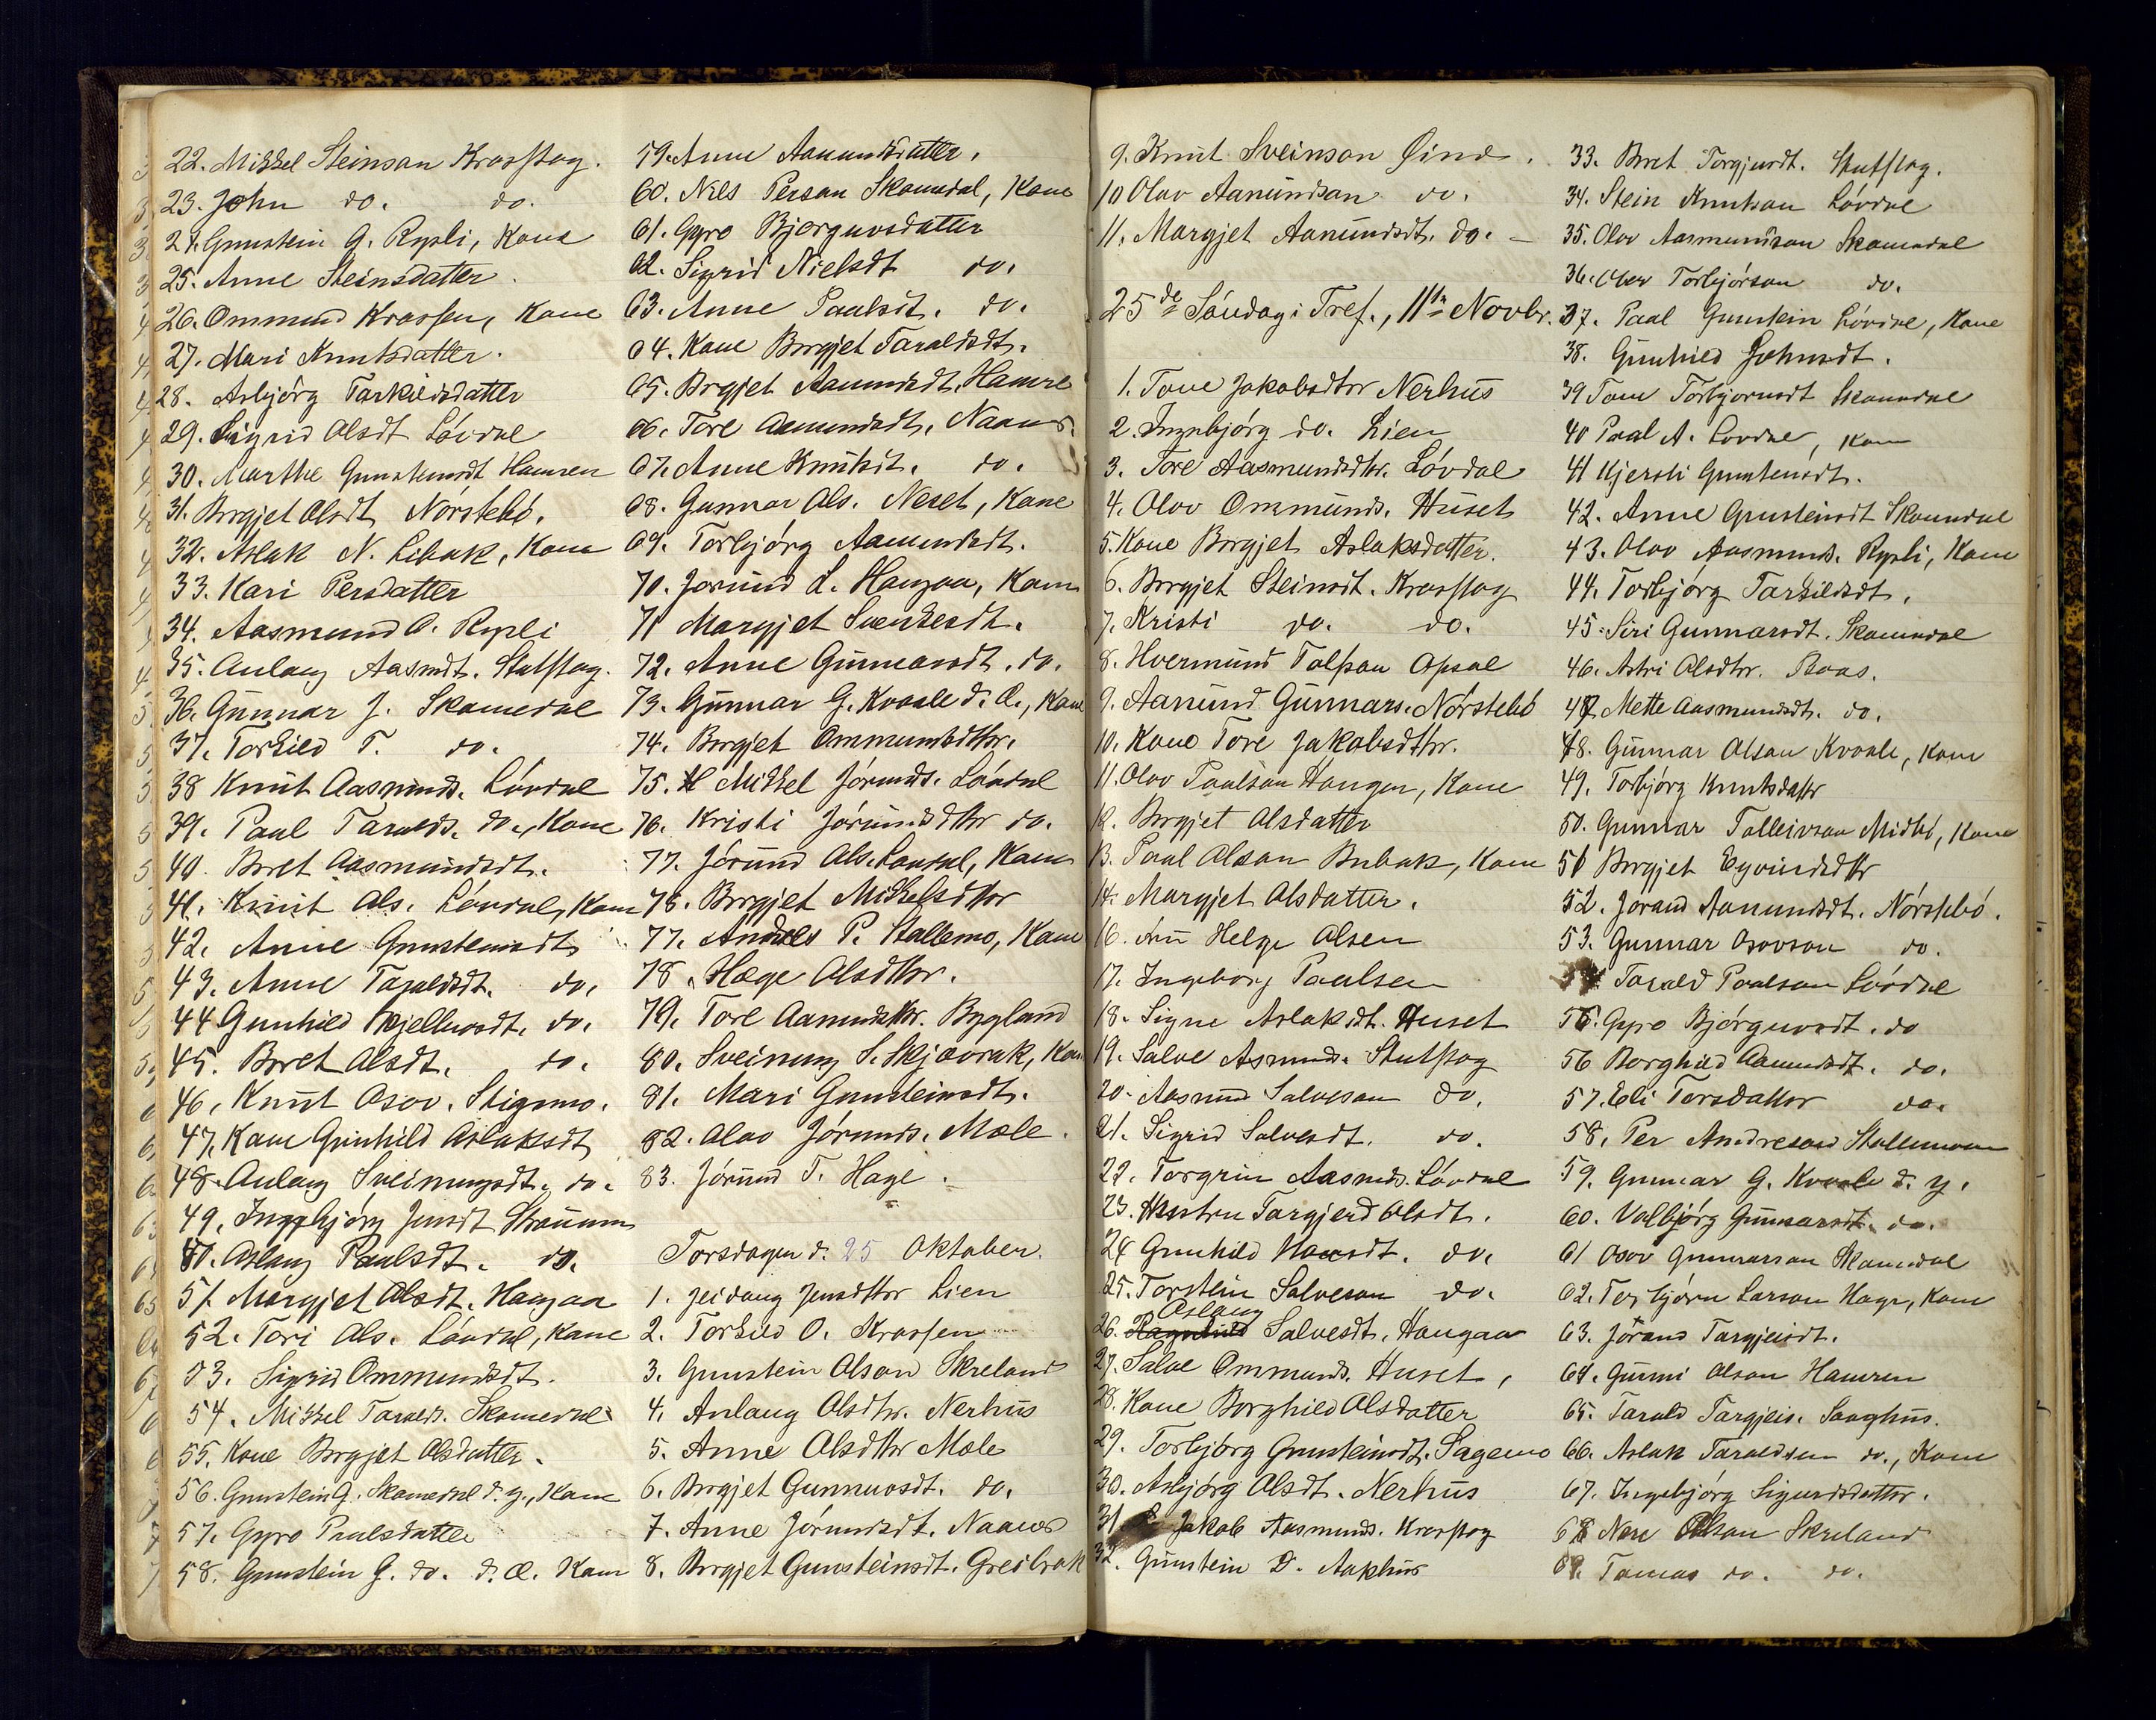 22. Mikkel Steinson Krosskog.
23. John do. do.
24. Gunstein G. Rysli, Kone
25. Anne Steinsdatter.
26. Ommund Krossen, Kone
27. Mari Knutsdatter.
28. Asbjörg Tarkieldsdatter
29. Sigrid Olsdt Lövdal
30. Marthe Gunsteinsdt Hamren
31. Borgjet Olsdt, Nörstebö.
32. Aslak N. Libak, Kone
33. Kari Persdatter
34. Aasmund O. Rysli
35. Aulaug Aasmdt. Stutskog.
36. Gunnar J. Skamedal
37. Torkild T. do.
38 Knut Aasmunds. Lövdal
39. Paal Taralds. do., Kone
40. Boret Aasmundsdt.
41. Knut Ols. Lövdal, Kone
42. Anne Gunsteinsdt
43. Anne Taraldsdt. do.
44 Gunhild Kjelluvsdt. do.
45. Boret Olsdt. do.
46. Knut Osov. Stigemo.
47. Kone Gunhild Aslaksdt
48. Aulaug Sveinungsdt. do.
49. Ingebjörg Jensdt Straumn
50. Aslaug Paulsdt. do.
51. Margjet Olsdt. Haugaa
52. Tori Ols. Lövdal, Kone
53. Sigrid Ommundsdt.
54. Mikkel Taralds. Skamedal
55. Kone Borgjet Olsdatter.
56. Gunstein G. Skamedal d. y., Kone
57. Gyro Paalsdatter
58. Gunstein G. do. d. æ. Kone
59. Anne Aanundsdatter.
60. Nils Person Skamedal, Kone
61. Gyro Bjorguvsdatter
62. Sigrid Nielsdt do.
63. Anne Paalsdt. do.
64. Kone Borgjet Taraldsdt.
65. Borgjet Aanundsdt. Hamre
66. Tore Aanundsdt. Naans.
67. Anne Knutsdt. do.
68. Gunnar Ols. Neset, Kone
69. Torbjörg Aanundsdt.
70. Jorund L. Haugaa, Kone
71 Margjet Svenkesdt.
72. Anne Gunnarsdt. do.
73. Gunnar G. Kvaale d. æ., Kone
74. Borgjet Ommundsdttr.
75. Mikkel Jörunds. Lövdal
76. Kristi Jörundsdttr do.
77. Jörund Ols. Lövdal, Kone
78. Borgjet Mikkelsdttr
77. Anders P. Stallemo, Kone
78. Hæge Olsdttr.
79. Tore Aanundsttr. Bygland
80. Sveinung S. Skjævrak, Kone
81. Mari Gunsteinsdt.
82. Olav Jörunds. Mæle.
83. Jörund T. Hage.
Torsdagen d. 25 Oktober.
1. Jeidaug Jensdttr Lien
2. Torkild O. Krossen
3. Gunstein Olson Skreland
4. Anlaug Olsdtr. Nerhus
5. Anne Olsdttr Mæle
6. Borgjet Gunnuvsdt. do.
7. Anne Jörundsdt. Naanes
8. Borgjet Gunsteinsdt. Greibrok
9. Knut Sveinson Öine.
10 Olav Aanundson do.
11. Margjet Aanundsdt. do. –
25de Söndag i Tref., 11te Novbr.
1. Tone Jakobsdttr Nerhus
2. Ingebjörg do. Lien
3. Tore Aasmundsdtr. Lövdal
4. Olov Ommunds. Huset
5. Kone Borgjet Aslaksdatter.
6. Borgjet Steinsdt. Krosskog
7. Kristi do. do.
8. Hvermund Talfsan Opsal
9. Aanund Gunnars. Nörstebö
10. Kone Tore Jakobsdttr.
11. Olov Paalson Haugen, Kone
12. Borgjet Olsdatter
13. Paal Olson Bubak, Kone
14. Margjet Olsdatter.
16. Helge Olsen
17. Ingeborg Paalsen
18. Signe Aslaksdt. Huset
19. Salve Asmunds. Stutskog
20. Aasmund Salveson do.
21. Sigrid Salvesdt. do.
22. Torgrim Aasmds. Lövdal
23. Hustru Targjerd Olsdt.
24 Gunhild do.
25. Torstein Salveson do.
Aslaug
26. Ragnhild Salvesdt. Haugaa
27. Salve Ommunds. Huset,
28. Kone Borghild Olsdatter
29. Torbjörg Gunsteinsdt. Sagemo
30. Asbjörg Olsdt. Nerhus
31. Jakob Aasmunds. Krosskog
32. Gunstein D. Aakhus
33. Boret Torgjusdt. Stutskog.
34. Stein Knutson Lövdal
35. Olov Aasmundson Skamedal
36. Olav Torbjörson do.
37. Paal Gunstein Lövdal, Kone
38. Gunhild Johnsdt.
39 Tone Torbjornsdt Skamedal
40 Paal A. Lovdal, Kone
41 Kjersti Gunsteinsdt.
42. Anne Gunsteinsdt Skamedal
43. Olov Aasmunds. Rysli, Kone
44. Torbjörg Tarkildsdt.
45. Siri Gunnarsdt. Skamedal
46. Astri Olsdttr. Roas.
47. Mette Aasmundsdt. do.
48. Gunnar Olson Kvaale, Kone
49. Torbjörg Knutsdattr
50. Gunnar Talleivson Midbö, Kone
51 Borgjet Eyvindsdttr
52. Joraand Aanundsdt. Nörstebö.
53. Gunnar Osovson do.
54 Tarald Paalson Lövdal
55. Gyro Björguvsdt. do
56 Borghild Aanundsdt. do.
57. Eli Torsdattor do.
58. Per Andreson Stallemoen
59. Gunnar G. Kvaale d. y.
60. Valbjörg Gunnarsdt. do.
61 Osov Gunnarson Skamedal
62. Torbjörn Larson Hage, Kone
63. Jörand Targjeisdt.
64. Gunni Olson Hamren
65. Tarald Targjeis. Sanghus.
66. Aslak Taraldsen do., Kone
67. Ingebjörg Sigurdsdatter.
68 Nere Olson Skreland
69. Tomas do. do.